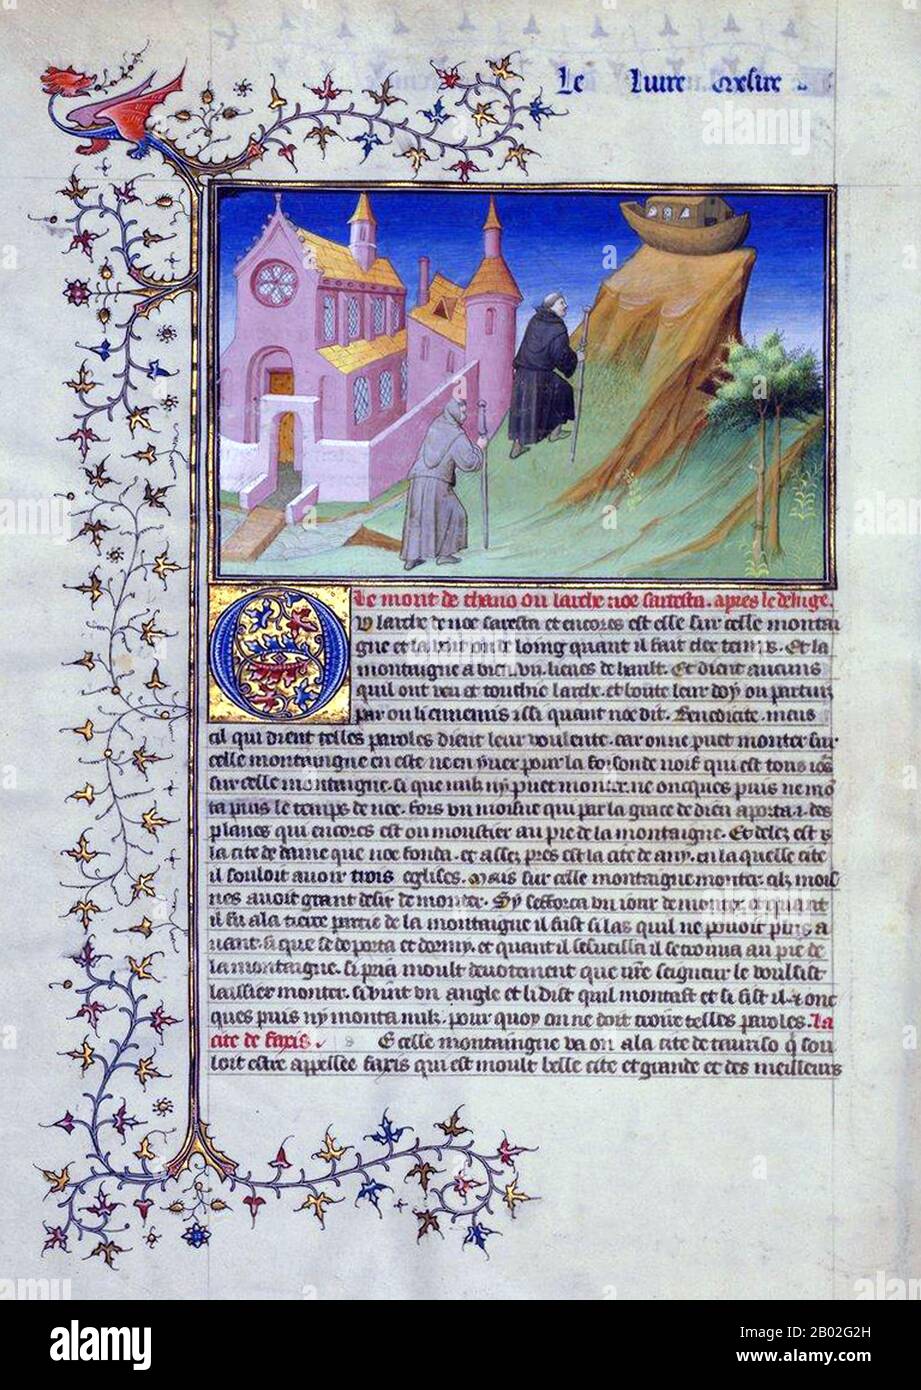 Le Livre Messire
Le mont de thano ou larche noe saresta. apres le deluge.
Ou larche de noe saresta et encores est elle sur celle montai
gne et la voit on de loing quant il fait cler temps. Et la
montaigne a bien .vii. lieues de hault. Et dient aucuns
quil ont veu et touchie larche. et boute leur doy ou partuis
par ou li ennemis issi quant noe dit. Benedicite. mais
cil qui dient telles paroles dient leur voulente. car on ne puet monter sur
celle montaingne en este ne en yver pour la foison de noif qui est tous iours
sur celle montaigne. si que nulz ny puet monter. ne oncques puis ne mo
ta puis le temps de noe. fors un moisne qui par la grace de dieu aporta .i. des
planes qui encores est ou moustier au pie de la montaigne. Et delez est
la cite de dame que noe fonda. et assez pres est la cite de any. en la quelle cite
il souloit avoir trois eglises. Mais sur celle montaigne monter. cilz mois
nes avoit grant desir de monter. Sy sefforca un iour de monter. et quant
il fu a la tierce partie de la montaigne il fust si las quil ne povoit plus a
vant. si que se deporta et dormy. et quant il sesveilla il se trouva au pie de
la montaigne. si pria moult devotement que nostre seigneur le voulsist
laissier monter. si vint un angle et li dist quil montast et si fist il. et onc
ques puis ny monta nulz. pour quoy on ne doit croire telles paroles. La
cite de faxis. De celle montaingne va on a la cite de tauriso q sou
loit estre appellee faxis qui est moult belle cite et grande et des meilleurs
alamy
Image ID: 2B02G2H
www.alamy.com